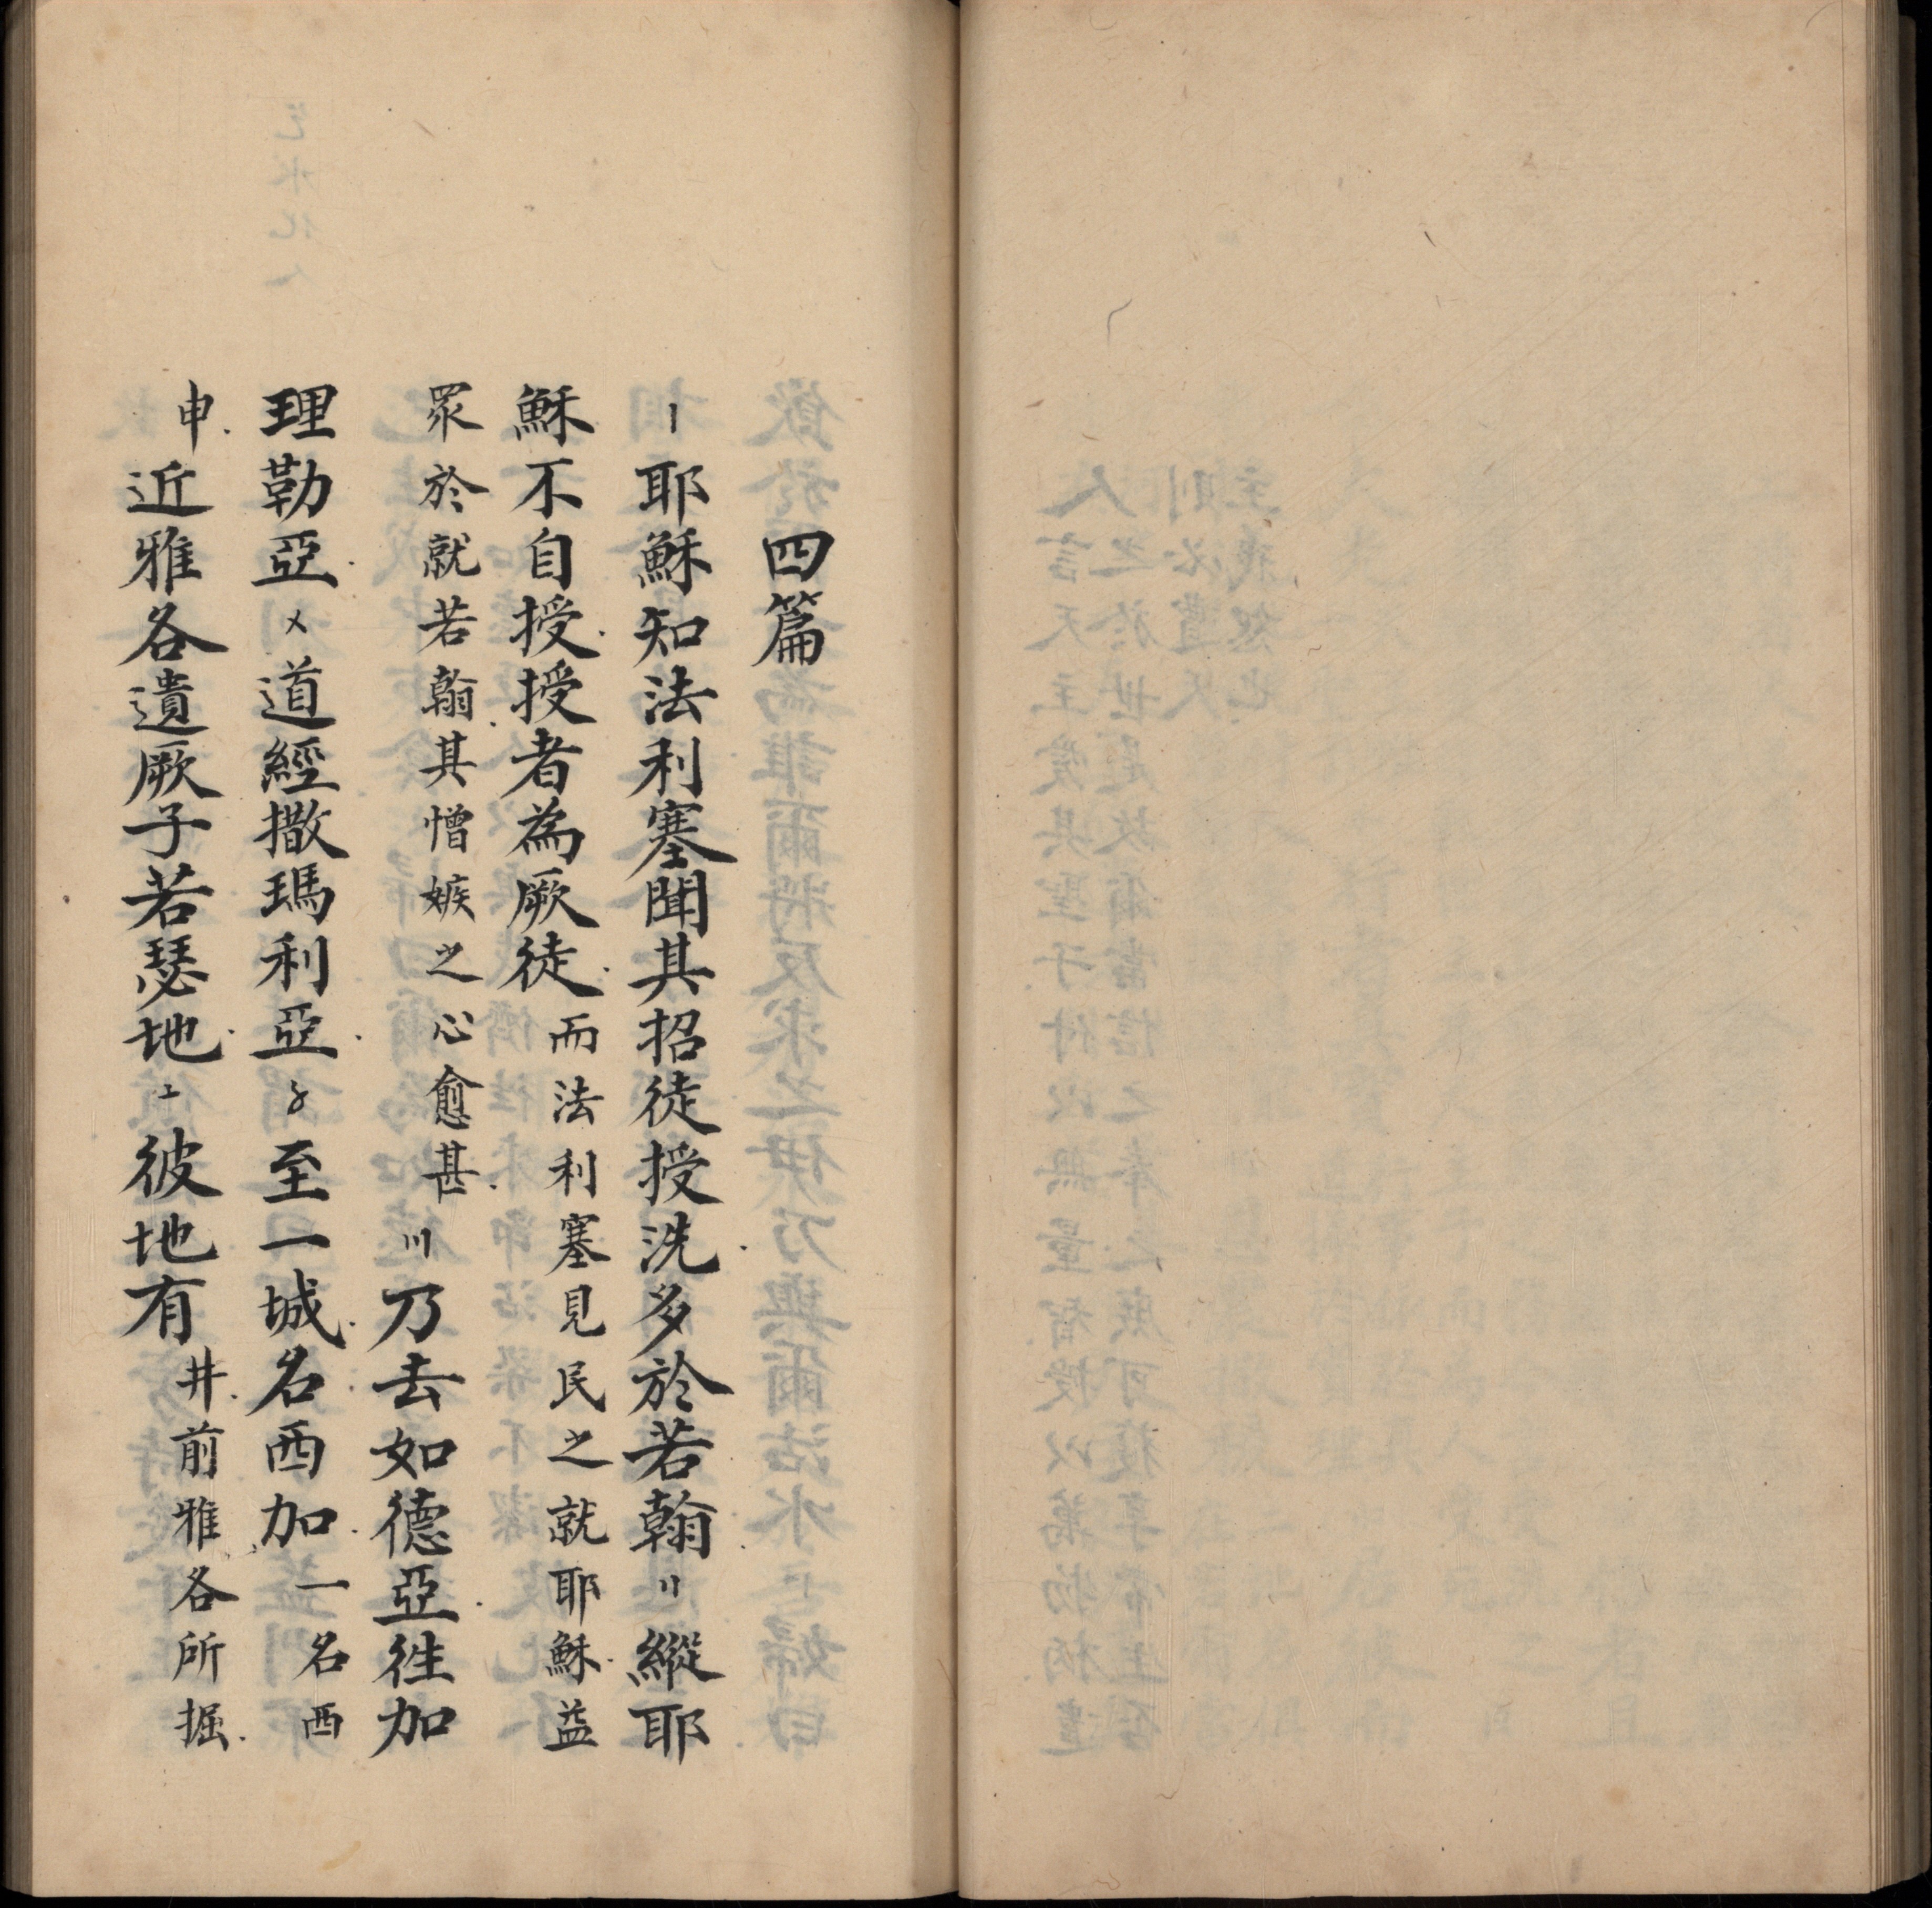 四篇
〡耶穌知法利塞聞其招徒授洗多於若翰〢縱耶
穌不自授授者為厥徒而法利塞見民之就耶穌益
眾於就若翰其憎嫉之心愈甚〣乃去如德亞徃加
理勒亞〤道經撒瑪利亞〥至一城名西加一名西
申近雅各遺厥子若瑟地〦彼地有井前雅各所掘